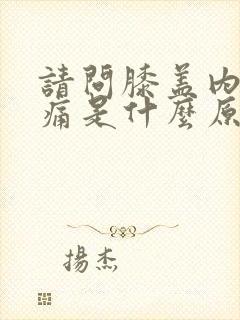 請問膝盖内
痛是什麼原
揚杰